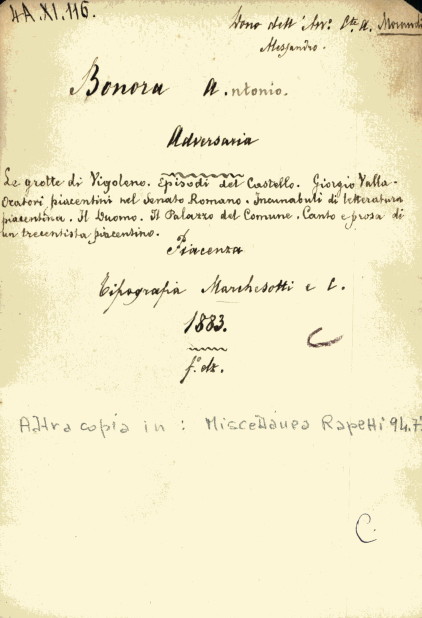 4A.XI.116.
Dono dell' Avv. Cte A. Morandi
Alessandro.
Bonora A.ntonio.
Adversaria
Le grotte di Vigoleno. Episodi del Castello. Giorgio Valla.
Oratori piacentini nel Senato Romano. Incunabuli di letteratura
piacentina. Il Duomo. Il Palazzo del Comune. Canto e prosa di
un trecentista piacentino.
Piacenza
Tipografia Marchesotti e C.
1883.
Altra copia in : Miscellanea Rapetti 94.7
C.